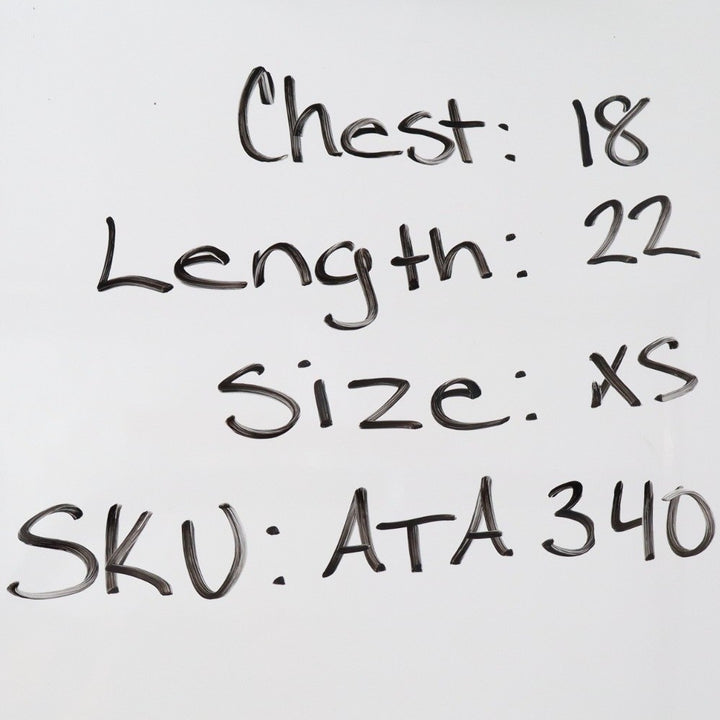 Chest: 18
Length: 22
Size: XS
SKU: ATA 340